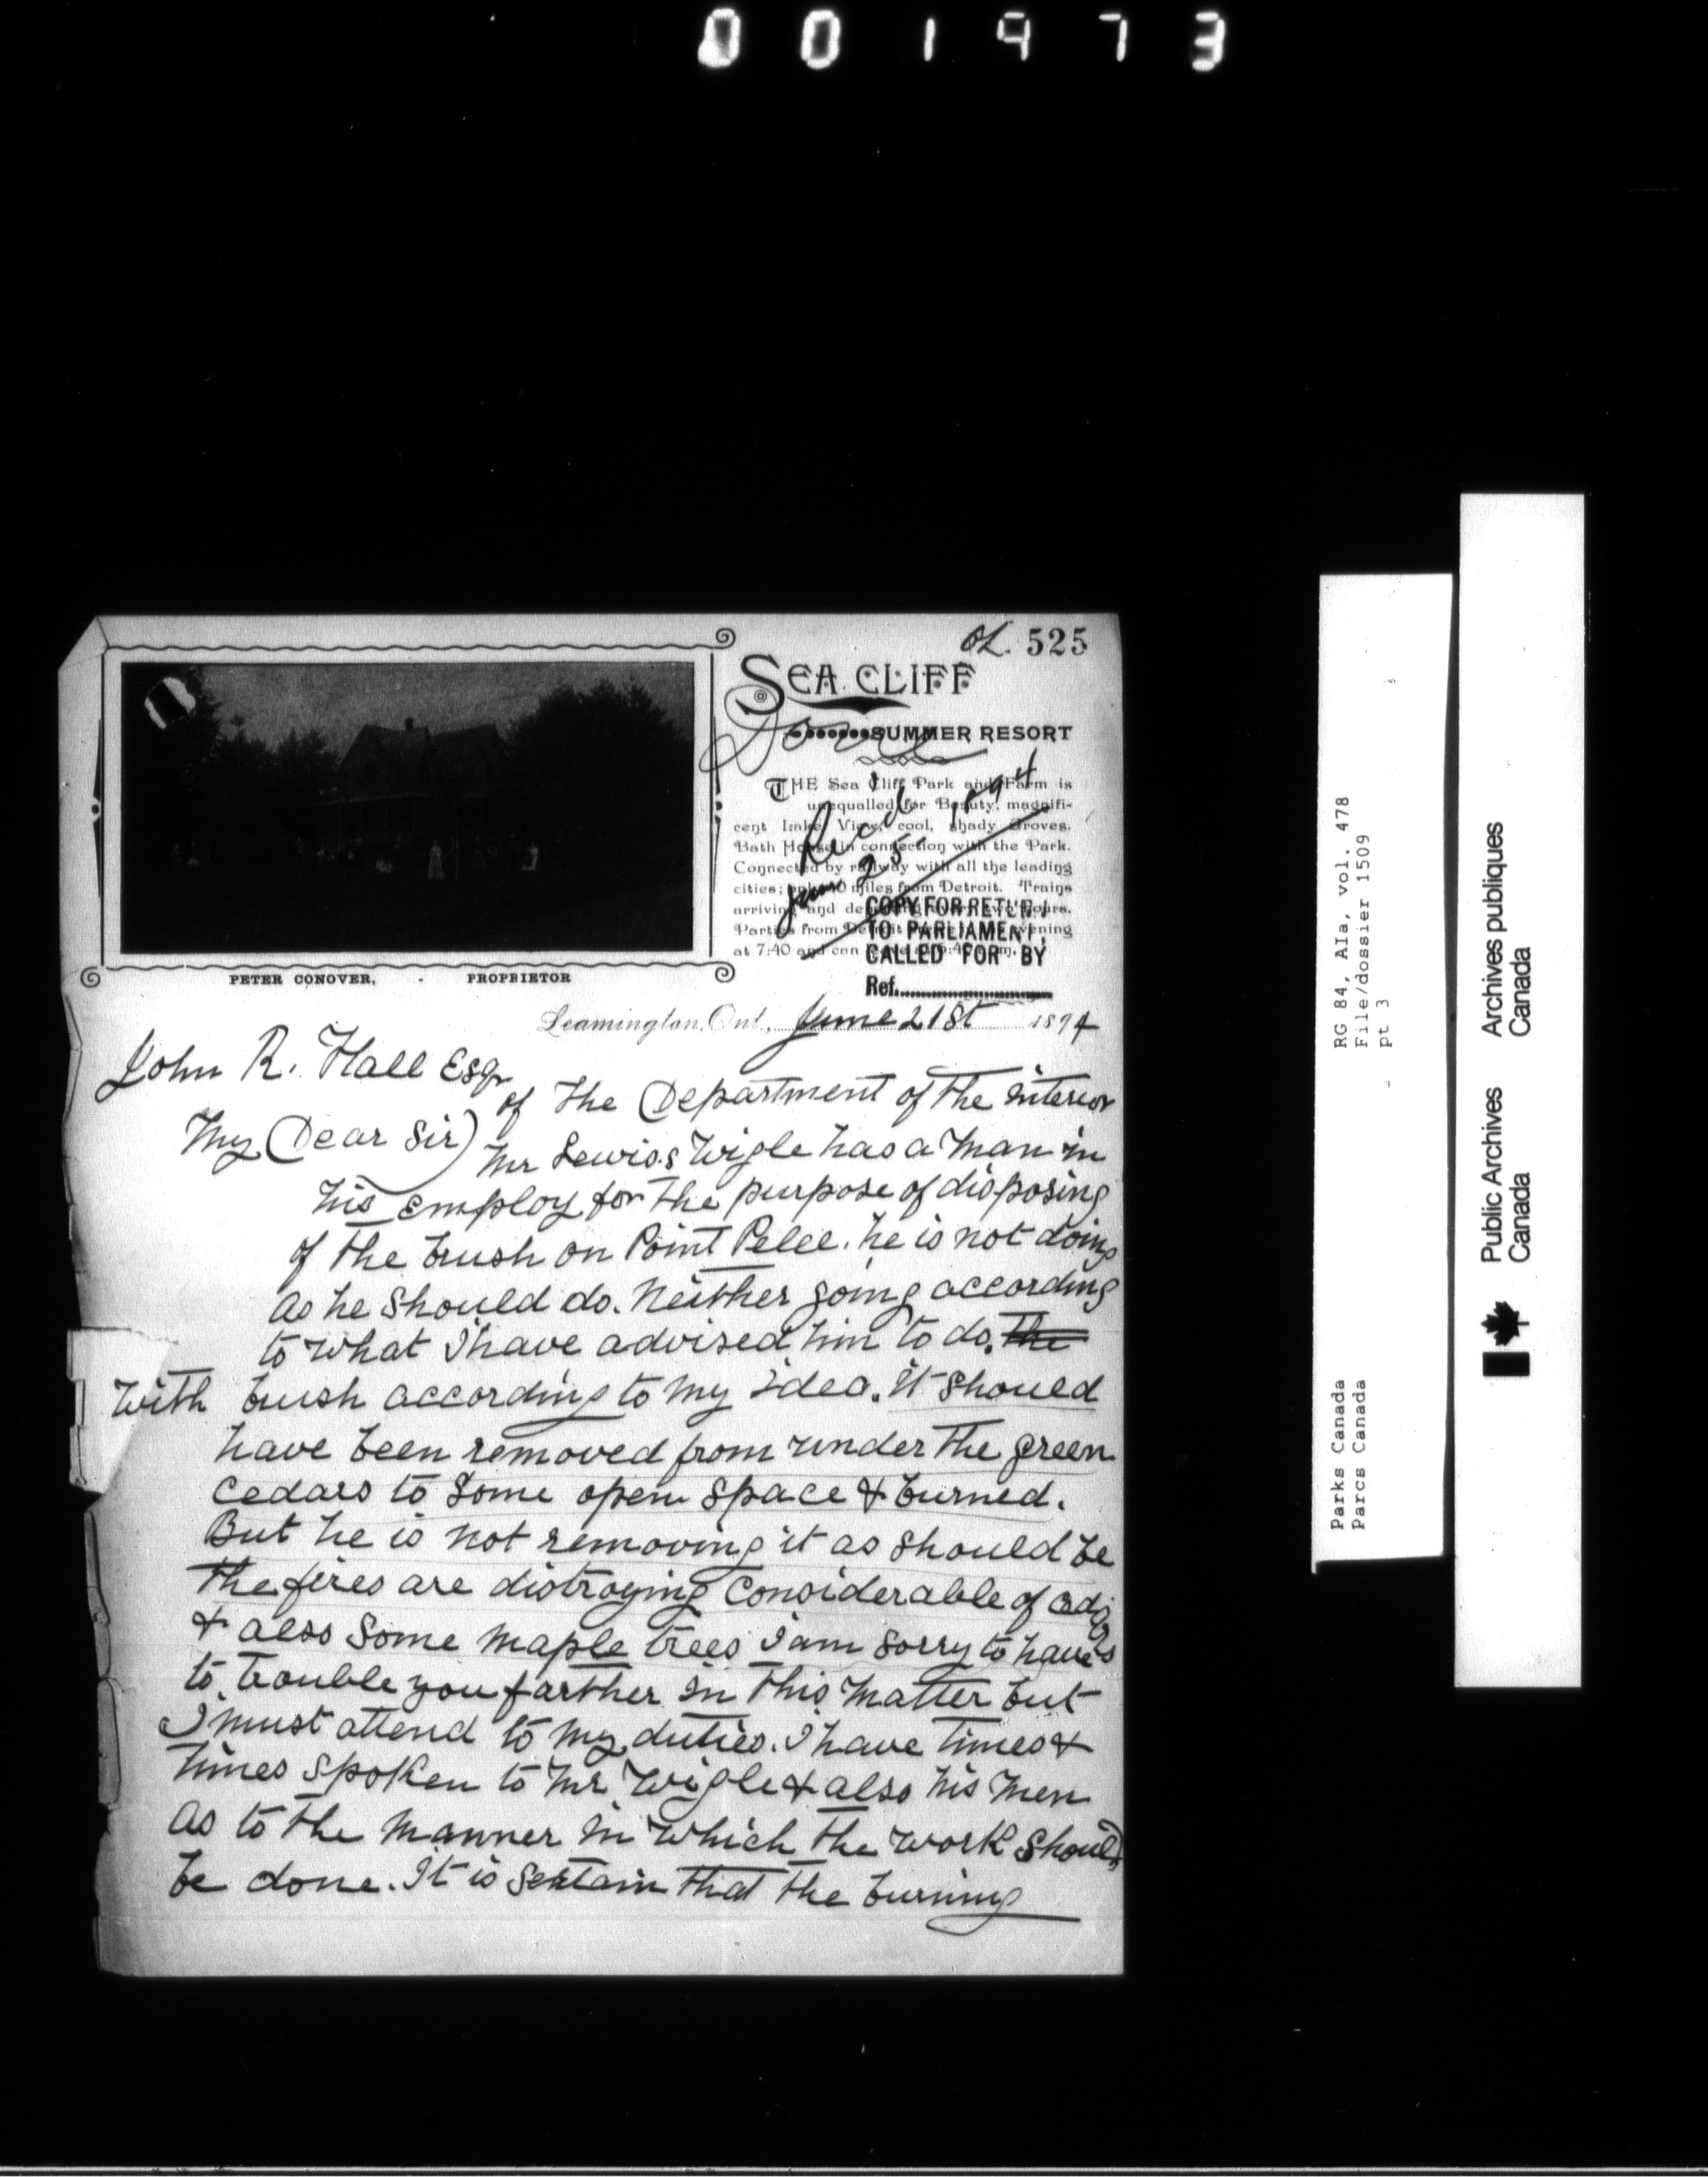 001973
OL. 525
SEA CLIFF
SUMMER RESORT
THE Sea Cliff Park and Farm is
unequalled for Beauty, magnifi-
cent Lake View, cool, shady Groves.
Bath House in connection with the Park.
Connected by railway with all the leading
cities; only 40 miles from Detroit. Trains
arriving and departing every two hours.
Parties from Detroit evening
at 7:40 and can
Rec'd
June 25 1894
COPY FOR RETURN
TO PARLIAMENT,
CALLED FOR BY
Ref.
PETER CONOVER, - PROPRIETOR
Leamington, Ont., June 21st 1894
John R. Hall Esqr
of the Department of the interior
My Dear Sir) Mr Lewis Wigle has a man in
his employ for the purpose of disposing
of the brush on Point Pelee. he is not doing
as he should do. Neither going according
to what I have advised him to do. the
with brush according to my idea. it should
have been removed from under the green
cedars to some open space & burned.
But he is not removing it as should be
the fires are distroying considerable of
& also some maple trees I am sorry to have
to trouble you farther in this matter but
I must attend to my duties. I have times &
times spoken to Mr Wigle & also his men
as to the manner in which the work should
be done. It is sertain that the burning
RG 84, A1a, vol. 478
File/dossier 1509
pt 3
Parks Canada
Parcs Canada
Public Archives
Canada
Archives publiques
Canada